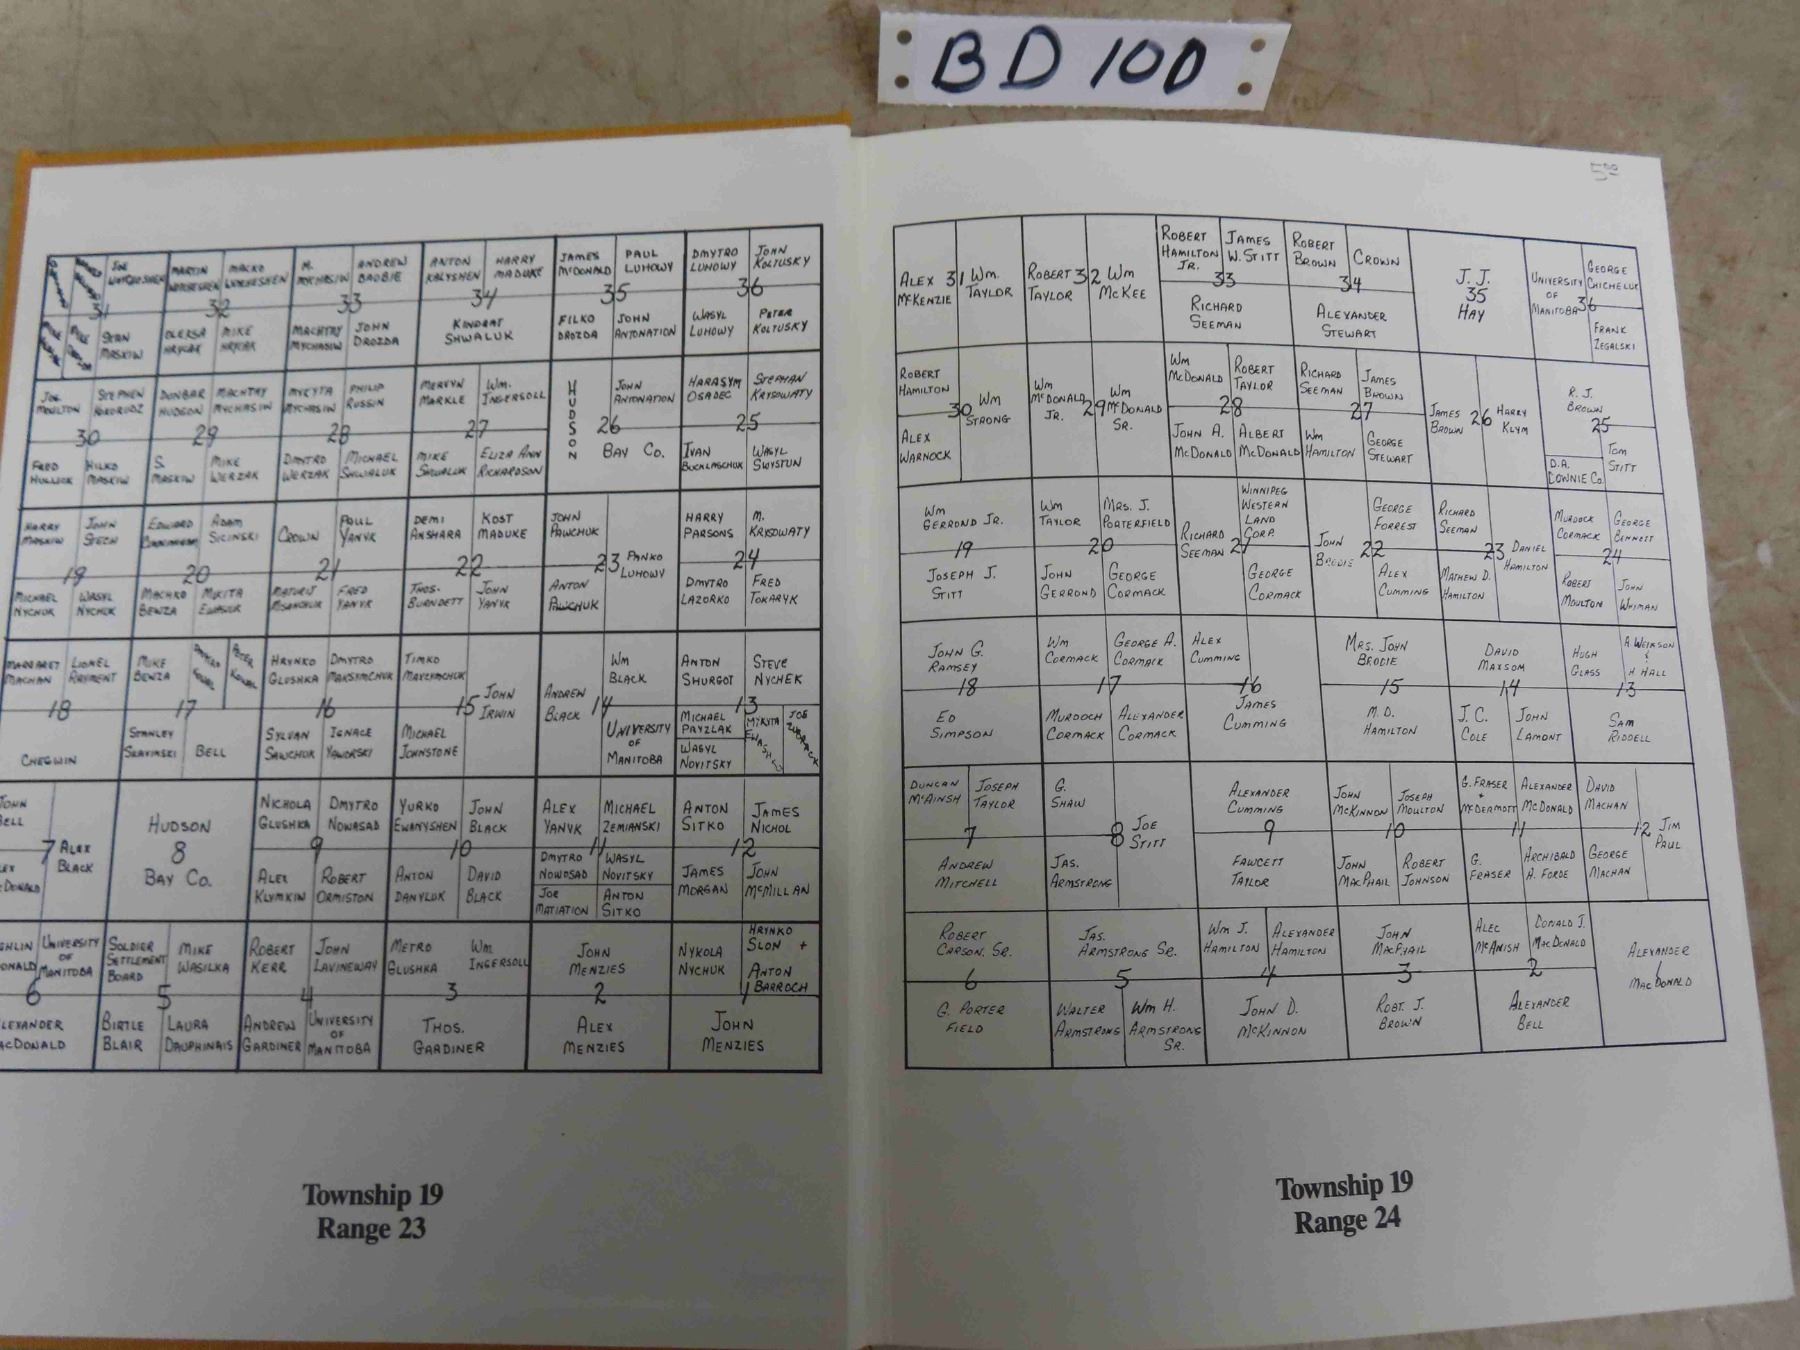 BD 100
5.00
JOE
MARTIN
MACKO
M.
MYCHASIW
ANDREW
BABBIE
ANTON
KALYSHEN
HARRY
MADUKE
JAMES
McDONALD
PAUL
LUHOWY
DMYTRO
LUHOWY
JOHN
KOLTUSKY
31
32
33
34
35
36
STAN
MASKIW
OLEKSA
HRYCAK
MIKE
HRYCAK
MACHTAY
MYCHASIW
JOHN
DROZDA
KINDRAT
SHWALUK
FILKO
DROZDA
JOHN
ANTONATION
WASYL
LUHOWY
PETER
KOLTUSKY
JOE
MOULTON
STEPHEN
DUNBAR
HUDSON
MACHTAY
MYCHASIW
MYKYTA
MYCHASIW
PHILIP
RUSSIN
MERVYN
MARKLE
WM.
INGERSOLL
HUDSON
JOHN
ANTONATION
HARASYM
OSADEC
STEPHAN
KRYSOWATY
30
29
28
27
26
25
FRED
HILKO
MASKIW
S.
MASKIW
MIKE
WERZAK
DMYTRO
WERZAK
MICHAEL
SHWALUK
MIKE
SHWALUK
ELIZA ANN
RICHARDSON
BAY CO.
IVAN
WASYL
SWYSTUN
HARRY
MASKIW
JOHN
STECH
EDWARD
ADAM
SICINSKI
CROWN
PAUL
YANYK
DEMI
ANSHARA
KOST
MADUKE
JOHN
PAWCHUK
HARRY
PARSONS
M.
KRYSOWATY
19
20
21
22
23
PANKO
LUHOWY
24
MICHAEL
NYCHUK
WASYL
NYCHUK
MACHKO
BENZA
MIKITA
EWASUK
FRED
YANYK
THOS.
BURNDETT
JOHN
YANYK
ANTON
PAWCHUK
DMYTRO
LAZORKO
FRED
TOKARYK
MARGARET
MACHAN
LIONEL
RAYMENT
MIKE
BENZA
HRYNKO
GLUSHKA
DMYTRO
MAKSYMCHUK
TIMKO
JOHN
IRWIN
ANDREW
BLACK
WM
BLACK
ANTON
SHURGOT
STEVE
NYCHEK
18
17
16
15
14
13
CHEGWIN
STANLEY
SKAVINSKI
BELL
SYLVAN
SAWCHUK
IGNACE
YAWORSKI
MICHAEL
JOHNSTONE
UNIVERSITY
OF
MANITOBA
MICHAEL
PRYZLAK
WASYL
NOVITSKY
MYKYTA
JOE
7
ALEX
BLACK
HUDSON
8
BAY CO.
NICHOLA
GLUSHKA
DMYTRO
NOWASAD
YURKO
EWANYSHEN
JOHN
BLACK
ALEX
YANYK
MICHAEL
ZEMIANSKI
ANTON
SITKO
JAMES
NICHOL
9
10
11
12
ALEX
KLYMKIN
ROBERT
ORMISTON
ANTON
DANYLUK
DAVID
BLACK
DMYTRO
NOWOSAD
WASYL
NOVITSKY
JOE
MATIATION
ANTON
SITKO
JAMES
MORGAN
JOHN
McMILLAN
UNIVERSITY
OF
MANITOBA
SOLDIER
SETTLEMENT
BOARD
MIKE
WASILKA
ROBERT
KERR
JOHN
LAVINEWAY
METRO
GLUSHKA
WM
INGERSOLL
JOHN
MENZIES
NYKOLA
NYCHUK
HRYNKO
SLON +
ANTON
BARROCH
6
5
4
3
2
1
LEXANDER
ACDONALD
BIRTLE
BLAIR
LAURA
DAUPHINAIS
ANDREW
GARDINER
UNIVERSITY
OF
MANITOBA
THOS.
GARDINER
ALEX
MENZIES
JOHN
MENZIES
Township 19
Range 23
ALEX
McKENZIE
31
WM.
TAYLOR
ROBERT
TAYLOR
32
WM
McKEE
ROBERT
HAMILTON
JR.
JAMES
W. STITT
33
RICHARD
SEEMAN
ROBERT
BROWN
CROWN
34
ALEXANDER
STEWART
J. J.
35
HAY
UNIVERSITY
OF
MANITOBA
36
GEORGE
CHICHELUK
FRANK
ZEGALSKI
ROBERT
HAMILTON
30
WM
STRONG
ALEX
WARNOCK
WM
McDONALD
JR.
29
WM
McDONALD
SR.
WM
McDONALD
ROBERT
TAYLOR
28
JOHN A.
McDONALD
ALBERT
McDONALD
RICHARD
SEEMAN
JAMES
BROWN
27
WM
HAMILTON
GEORGE
STEWART
JAMES
BROWN
26
HARRY
KLYM
R. J.
BROWN
25
D.A.
COWNIE CO.
TOM
STITT
WM
GERROND JR.
19
JOSEPH J.
STITT
WM
TAYLOR
MRS. J.
PORTERFIELD
20
JOHN
GERROND
GEORGE
CORMACK
RICHARD
SEEMAN
21
WINNIPEG
WESTERN
LAND
CORP.
GEORGE
CORMACK
JOHN
BRODIE
22
GEORGE
FORREST
ALEX
CUMMING
RICHARD
SEEMAN
23
DANIEL
HAMILTON
MATHEW D.
HAMILTON
MURDOCK
CORMACK
GEORGE
BENNETT
24
ROBERT
MOULTON
JOHN
WHIMAN
JOHN G.
RAMSEY
18
ED
SIMPSON
WM
CORMACK
GEORGE A.
CORMACK
17
MURDOCH
CORMACK
ALEXANDER
CORMACK
ALEX
CUMMING
16
JAMES
CUMMING
MRS. JOHN
BRODIE
15
M. D.
HAMILTON
DAVID
MAXSOM
14
J. C.
COLE
JOHN
LAMONT
HUGH
GLASS
H HALL
13
SAM
RIDDELL
DUNCAN
McAINSH
JOSEPH
TAYLOR
7
ANDREW
MITCHELL
G.
SHAW
8
JOE
STITT
JAS.
ARMSTRONG
ALEXANDER
CUMMING
9
FAWCETT
TAYLOR
JOHN
McKINNON
JOSEPH
MOULTON
10
JOHN
MACPHAIL
ROBERT
JOHNSON
G. FRASER
+
McDERMOTT
ALEXANDER
McDONALD
11
G.
FRASER
ARCHIBALD
A. FORDE
DAVID
MACHAN
12
JIM
PAUL
GEORGE
MACHAN
ROBERT
CARSON. SR.
6
G. PORTER
FIELD
JAS.
ARMSTRONG SR.
5
WALTER
ARMSTRONG
WM H.
ARMSTRONG
SR.
WM J.
HAMILTON
ALEXANDER
HAMILTON
4
JOHN D.
McKINNON
JOHN
MACPHAIL
3
ROBT. J.
BROWN
ALEC
McANISH
DONALD J.
MACDONALD
2
ALEXANDER
BELL
ALEXANDER
1
MACDONALD
Township 19
Range 24